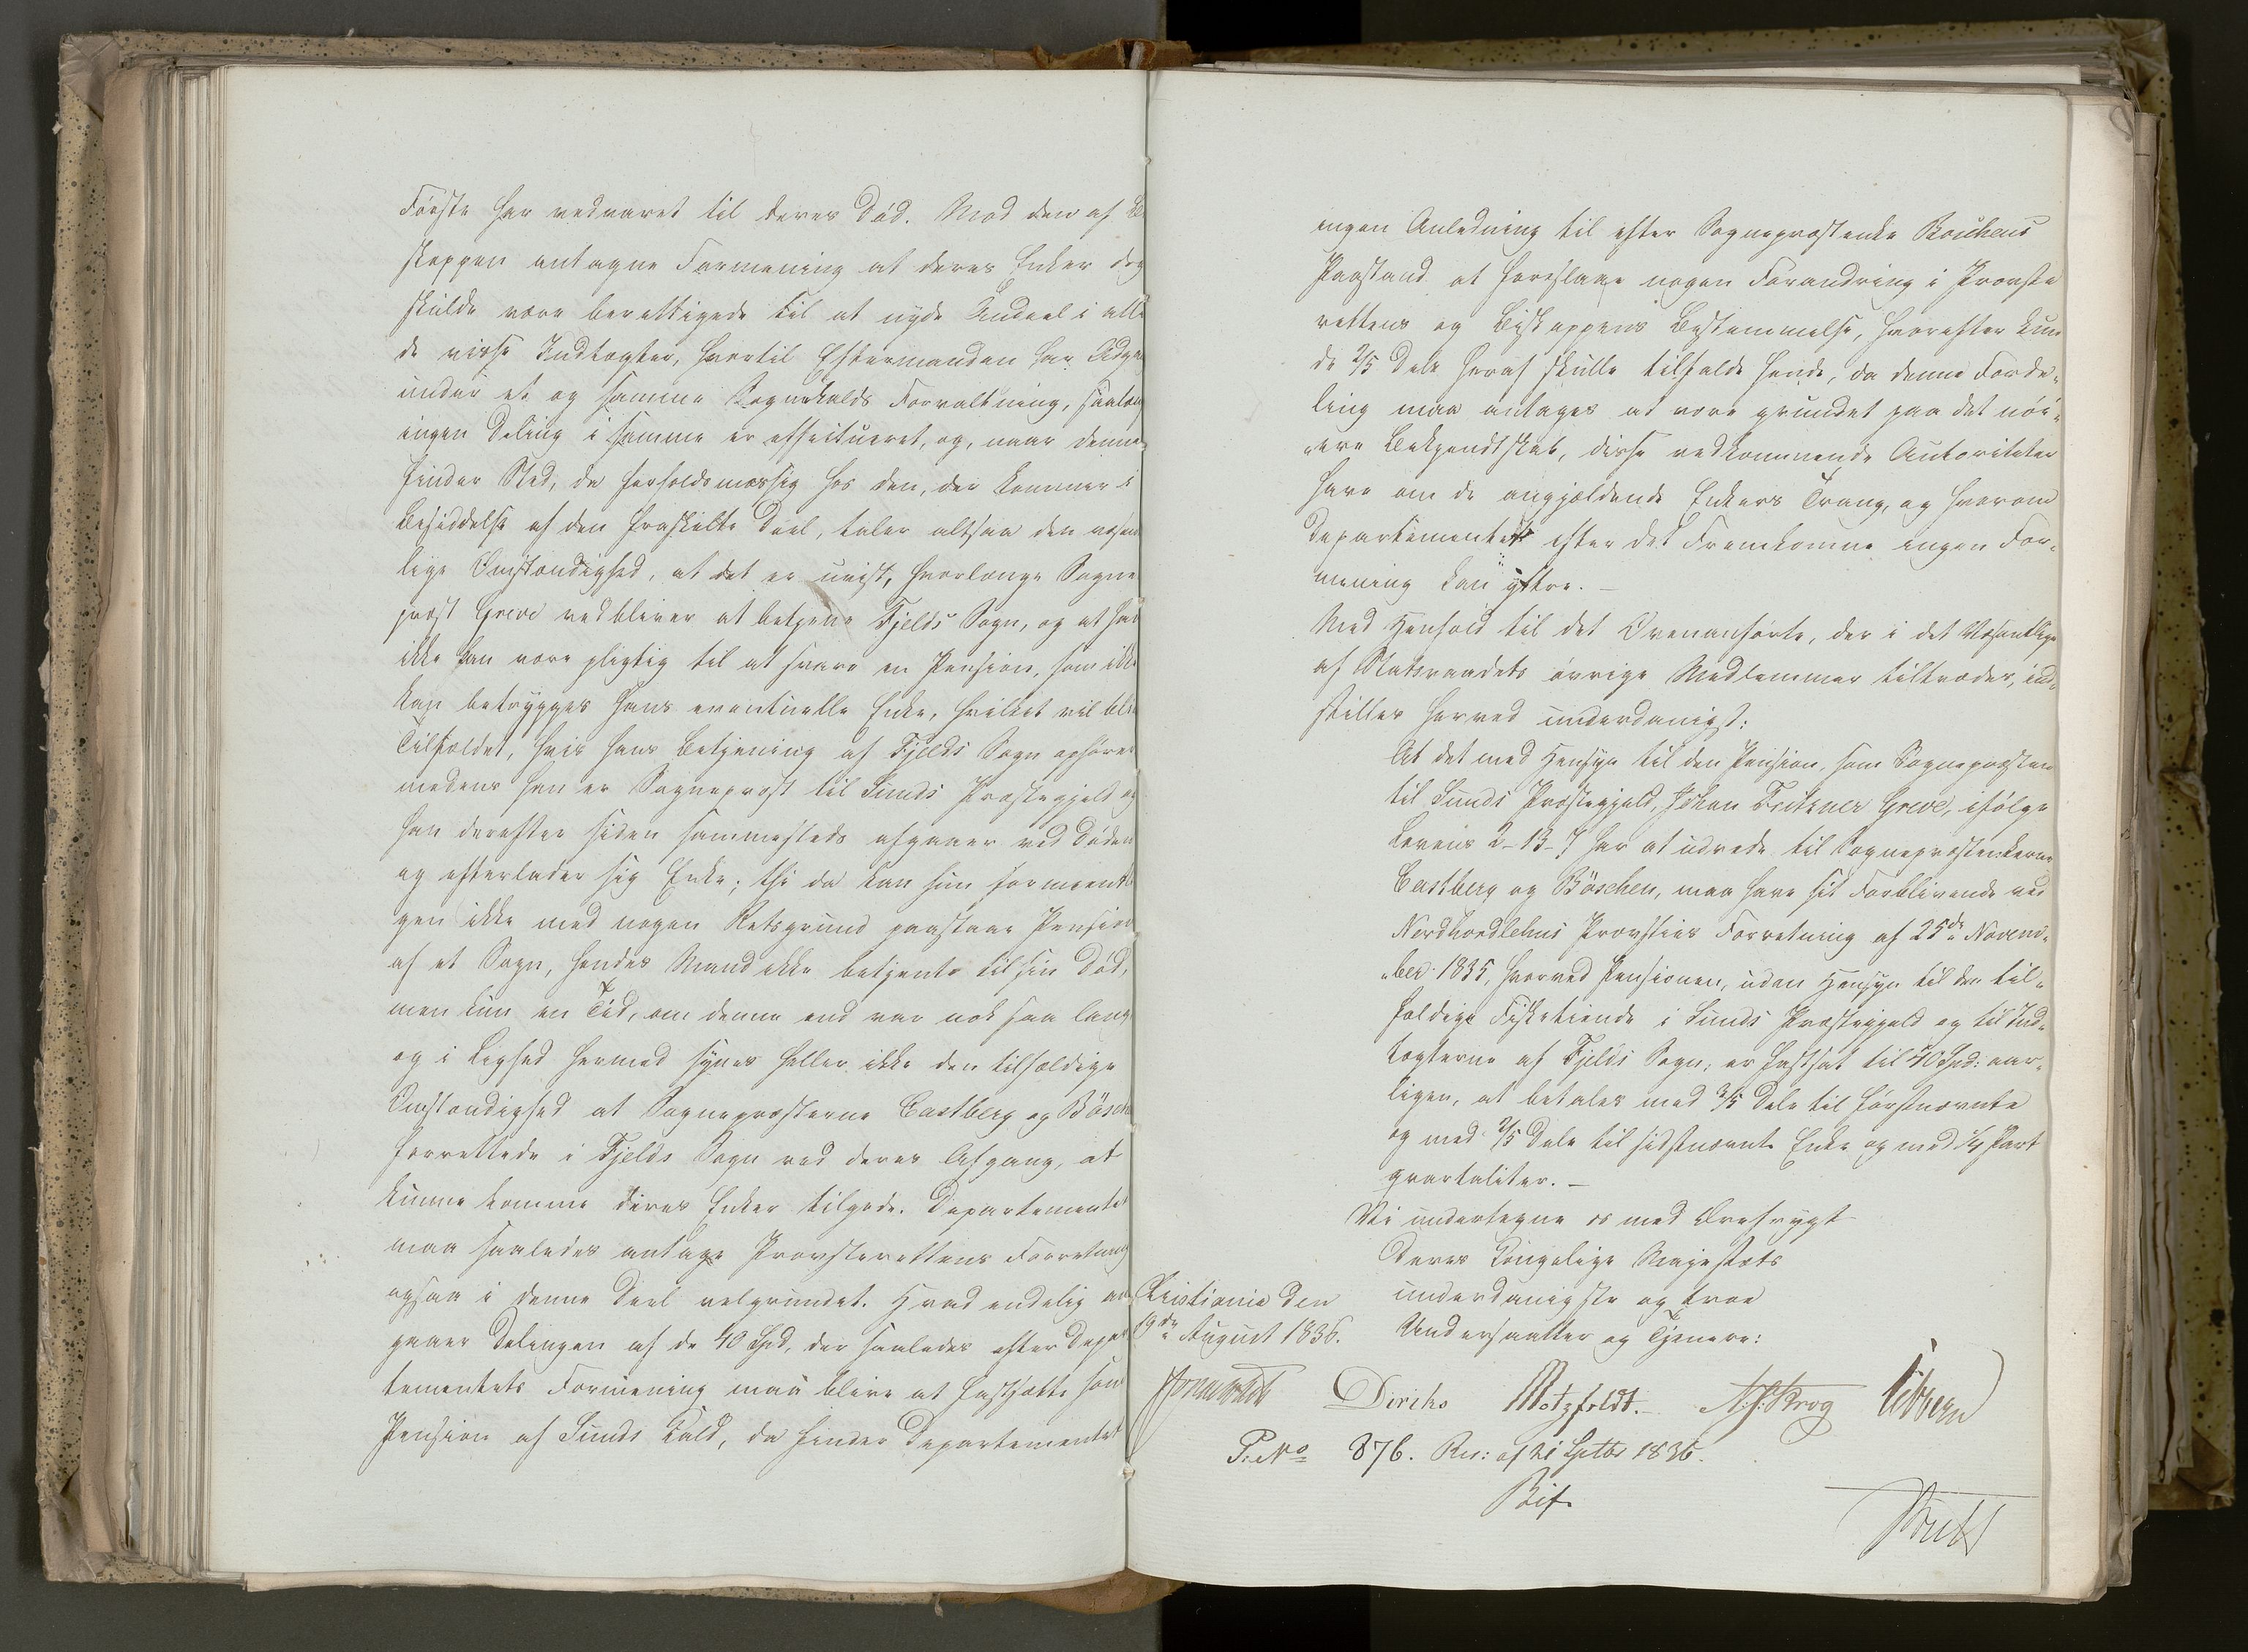 Første har vedvaret til deres Død. Mod den af Bi
skoppen antagne Formening at deres Enker dog
skulde være berettigede til at nyde Andeel i alle
de visse Indtægter, hvortil Eftermanden har Adga
under et og samme Sognekalds Forvaltning, saalæn
ingen Deling i samme er effectueret, og, naar denne
finder Sted, da forholdsmæssig hos den, der kommer i
Besiddelse af den fraskilte Deel, taler altsaa den væsent
lige Omstændighed, at det er uvist, hvorlænge Sogne
præst Greve vedbliver at betjene Fjelds Sogn, og at han
ikke kan være pligtig til at svare en Pension, som ikke
kan betrygges hans eventuelle Enke, hvilket vil bliv
Tilfældet, hvis hans Betjening af Fjelds Sogn ophører
medens han er Sognepræst til Sunds Præstegjeld og
han derefter siden sammesteds afgaaer ved Døden
og efterlader sig Enke; thi da kan hun formeentli
gen ikke med nogen Retsgrund paastaae Pension
af et Sogn, hendes Mand ikke betjente til sin Død,
men kun en Tid, om denne end var nok saa lang
og i Lighed hermed synes heller ikke den tilfældige
Omstændighed at Sognepræsterne Castberg og Bösch
forrettede i Fjelds Sogn ved deres Afgang, at
kunne komme deres Enker tilgode. Departementet
maa saaledes antage Provsterettens Forretning
ogsaa i denne Deel velgrundet. Hvad endelig an
gaaer Delingen af de 40 Spd, der saaledes efter Depar
tementets Formening maa blive at fastsætte som
Pension af Sunds Kald, da finder Departementet
ingen Anledning til efter Sognepræstenke Böschens
Paastand at foreslaae nogen Forandring i Provste
rettens og Biskoppens Bestemmelse, hvorefter kun
de 2/5 Dele heraf skulle tilfalde hende, da denne Forde-
ling maa antages at være grundet paa det nøi-
ere Bekjendtskab, disse vedkommende Autoriteter
have om de angjældende Enkers Trang, og hvorom
Departementet efter det Fremkomne ingen For-
mening kan yttre. –
Med Henhold til det Ovenanførte, der i det Væsentlige
af Statsraadets øvrige Medlemmer tiltrædes, ind-
stilles herved underdanigst:
At det med Hensyn til den Pension, som Sognepræsten
til Sunds Præstegjeld, Johan Fritzner Greve, ifølge
Lovens 2-13-7 har at udrede til Sognepræstenkerne
Castberg og Böschen, maa have sit Forblivende ved
Nordhordlehns Provsties Forretning af 25de Novem-
ber 1835, hvorved Pensionen, uden Hensyn til den til-
fældige Fisketiende i Sunds Præstegjeld og til Ind-
tægterne af Fjelds Sogn, er fastsat til 40 Spd: aar-
ligen, at betales med 3/5 Dele til førstnævnte
og med 2/5 Dele til sidstnævnte Enke og med 1/4 Part
qvartaliter. –
Vi undertegne os med Ærefrygt
Deres Kongelige Majestæts
underdanigste og troe
Undersaatter og Tjenere:
Christiania den
19de August 1836.
Diriks Motzfeldt. N. J. Krog Vibbern
P: No 876. Res: af 21 Septbr 1836.
Bif.